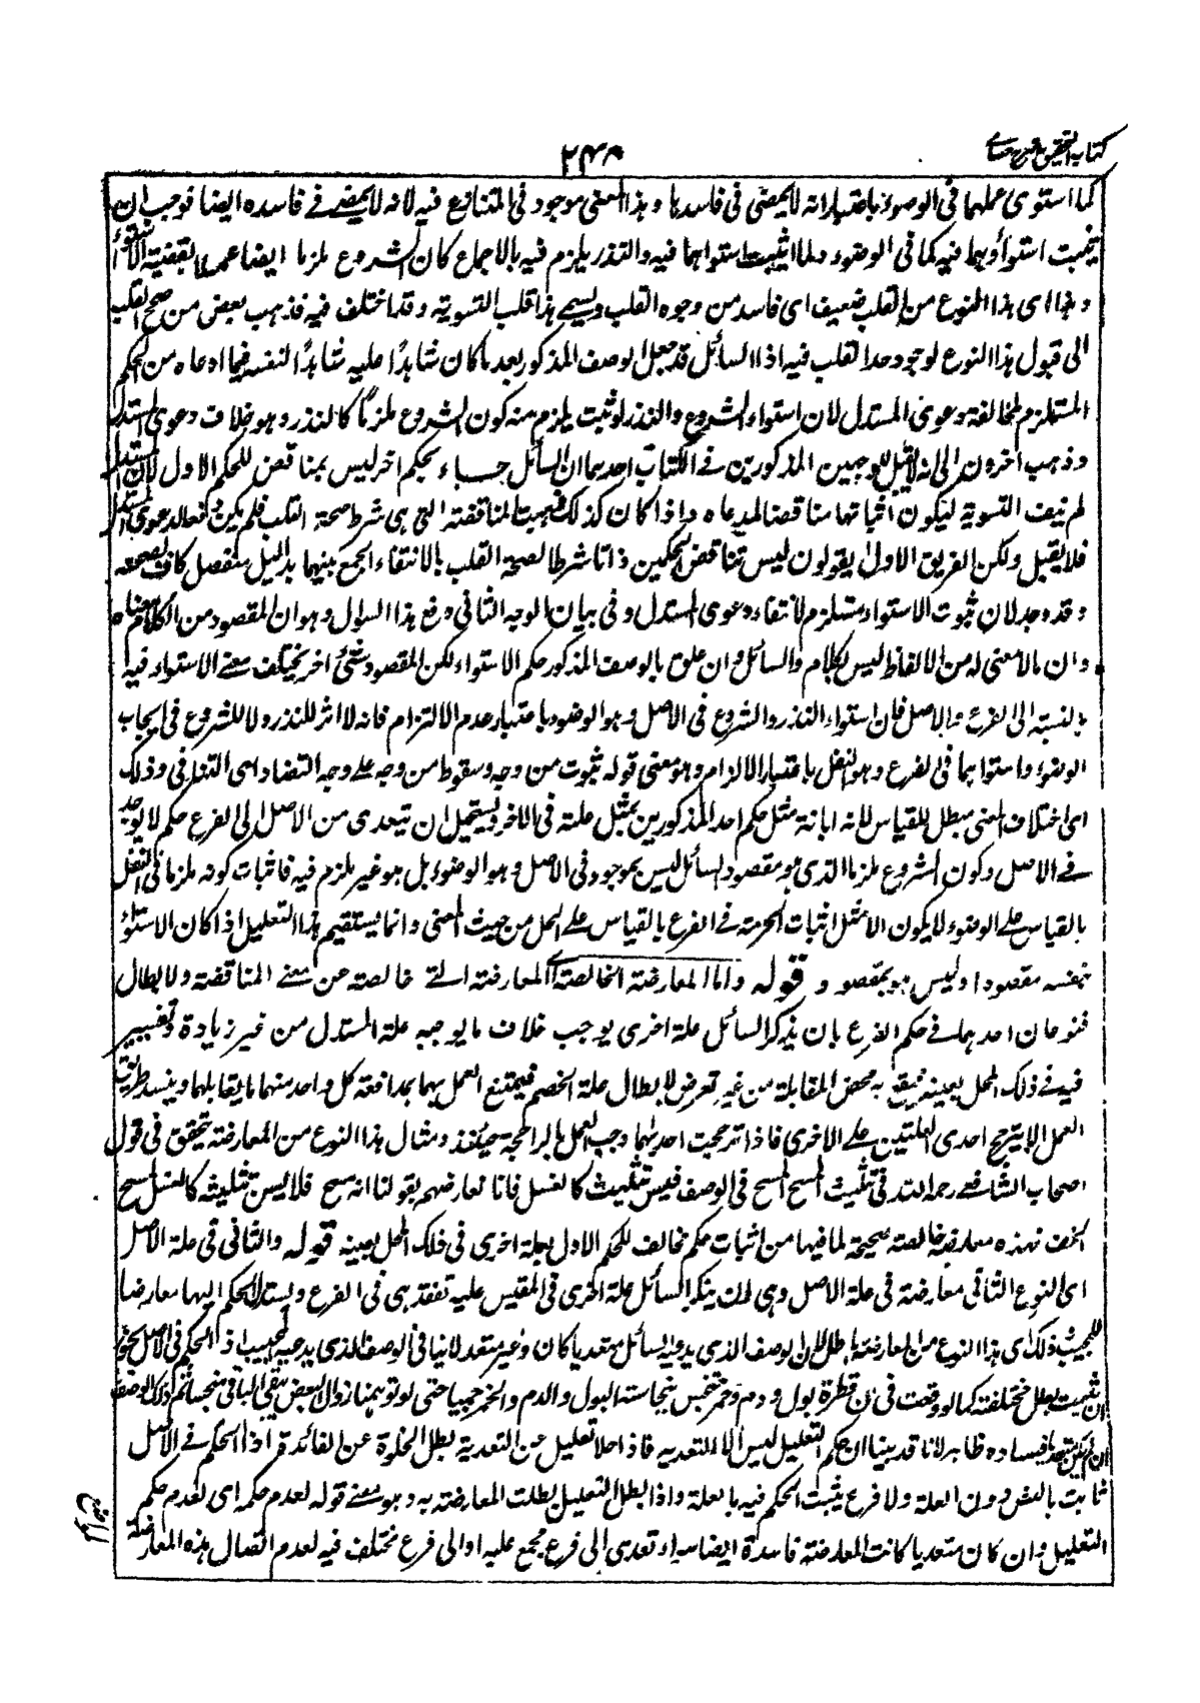 كتاب التحقيق شرح حسامي
٢٤٨
كما استوى عملهما في الوضوء باعتبار انه لا يمضى في فاسدها وهذا المعنى موجود في المتنازع فيه لانه لا يمضى في فاسده ايضا فوجب ان
يثبت استواؤهما فيه كما في الوضوء ولما اثبت استواهما فيه والنذر يلزم فيه بالاجماع كان الشروع ملزما ايضا عملا بقضية الاستواء
وهذا اى هذا النوع من القلب ضعيف اى فاسد من وجوه القلب ويسمى هذا قلب التسوية وقد اختلف فيه فذهب بعض من صحح القلب
الى قبول هذا النوع لوجود حد القلب فيه اذ السائل قد جعل الوصف المذكور بعد ما كان شاهدًا عليه شاهدًا لنفسه فيما ادعاه من الحكم
المستلزم لمخالفة دعوى المستدل لان استواء الشروع والنذر لو ثبت يلزم منه كون الشروع ملزمًا كالنذر وهو خلاف دعوى المستدل
وذهب آخرون الى انه لا يقبل لوجهين المذكورين في الكتاب احدهما ان السائل جاء بحكم اخر ليس بمناقض للحكم الاول لان المستدل
لم ينف التسوية ليكون اثباتها مناقضا لمدعاه واذا كان كذلك ذهبت المناقضة التي هى شرط صحة القلب فلم يكن دفعا لدعوى المستدل
فلا يقبل ولكن الفريق الاول يقولون ليس تناقض الحكمين ذاتا شرطا لصحة القلب بل انتفاء الجمع بينهما بدليل منفصل كاف لصحته
وقد وجد لان ثبوت الاستواء مستلزم لانتفاء دعوى المستدل وفي بيان الوجه الثانى دفع هذا السوال وهو ان المقصود من الكلام معناه
وان ما لا معنى له من الالفاظ ليس بكلام والسائل وان علق بالوصف المذكور حكم الاستواء لكن المقصود شئ آخر يختلف معنى الاستواء فيه
بالنسبة الى الفرع والاصل فان استواء النذر والشروع في الاصل وهو الوضوء باعتبار عدم الالتزام فانه لا اثر للنذر ولا للشروع في ايجاب
الوضوء واستواهما في الفرع وهو النفل باعتبار الالزام وهو معنى قوله ثبوت من وجه وسقوط من وجه على وجه التضاد اى التنافى وذلك
اى اختلاف المعنى مبطل للقياس لانه ابانة مثل حكم احد المذكورين بمثل علته في الاخر ويستحيل ان يتعدى من الاصل الى الفرع حكم لا يوجد
في الاصل وكون الشروع ملزما الذى هو مقصود السائل ليس بموجود في الاصل وهو الوضوء بل هو غير ملزم فيه فاثبات كونه ملزما في النفل
بالقياس على الوضوء لا يكون الا مثل اثبات الحرمة في الفرع بالقياس على الحل من حيث المعنى وانما يستقيم هذا التعليل اذا كان الاستواء
بنفسه مقصودا وليس هو بمقصود قوله واما المعارضة الخالصة اى المعارضة التى خالصة عن معنى المناقضة والابطال
فنوعان احدهما في حكم الفرع بان يذكر السائل علة اخرى يوجب خلاف ما يوجبه علة المستدل من غير زيادة وتغيير
فيه في ذلك المحل بعينه فيقع به محض المقابلة من غير تعرض لابطال علة الخصم فيمتنع العمل بهما بمدافعة كل واحد منهما ما يقابلهما وينسد طريق
العمل الا بترجيح احدى العلتين على الاخرى فاذا ترجحت احدهما وجب العمل بالراجحة حينئذ ومثال هذا النوع من المعارضة يتحقق في قول
اصحاب الشافعى رحمه الله في تثليث المسح المسح في الوصف فيسن تثليثه كالغسل فانا نعارضهم بقولنا انه مسح فلا يسن تثليثه كالغسل مسح
الخف فهذه معارضة خالصة صحيحة لما فيها من اثبات حكم مخالف للحكم الاول بعلة اخرى في ذلك المحل بعينه قوله والثانى في علة الاصل
اى النوع الثانى معارضة في علة الاصل وهى ان يذكر السائل علة اخرى في المقيس عليه تفقد هى في الفرع ويسند الحكم اليها معارضا
للمجيب ذلك اى هذا النوع من المعارضة باطل لان الوصف الذى يدعيه السائل متعديا كان او غير متعد لا ينافى الوصف الذى يدعيه المجيب اذ الحكم في الاصل يجوز
ان يثبت بعلل مختلفة كما لو وقعت في دن قطرة بول ودم وخمر تنجس بنجاسة البول والدم والخمر جميعا حتى لو توهمنا زوال البعض بقى الباقى نجسا ثم ذلك الوصف
ان لم يكن متعديا ففساده ظاهر لانا قد بينا ان حكم التعليل ليس الا التعدية فاذا خلا تعليل عن التعدية بطل لخلوه عن الفائدة اذ الحكم في الاصل
ثابت بالنص دون العلة ولا فرع يثبت الحكم فيه بالعلة واذا بطل التعليل بطلت المعارضة به وهو معنى قوله لعدم حكمه اى لعدم حكم
التعليل وان كان متعديا كانت المعارضة فاسدة ايضا سواء تعدى الى فرع مجمع عليه او الى فرع مختلف فيه لعدم اتصال هذه المعارضة